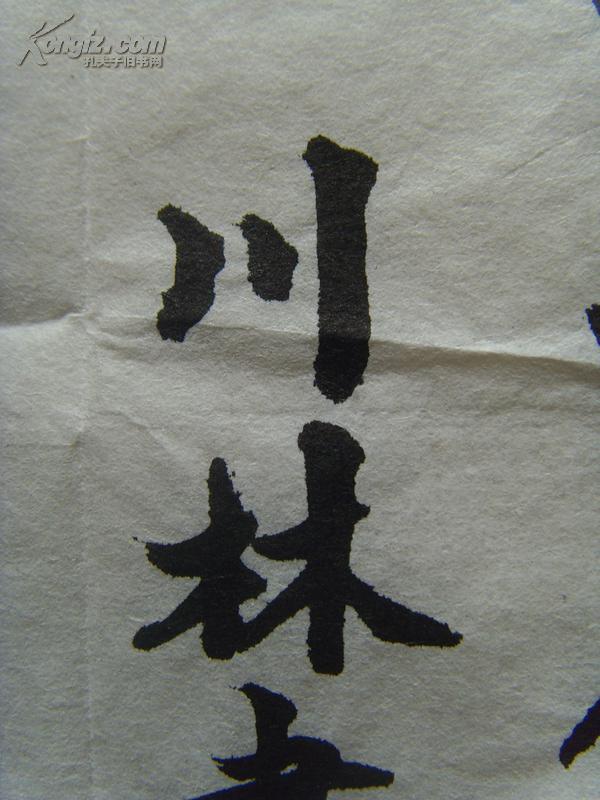 Kongfz.com
孔夫子旧书网
川林